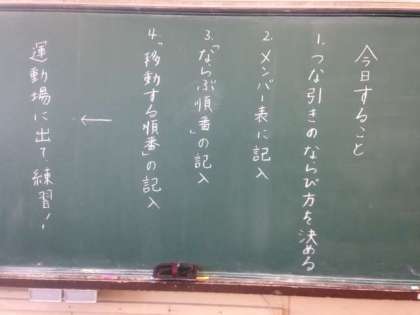 今日すること
1.つな引きのならび方を決める
2.メンバー表に記入
3.「ならぶ順番」の記入
4.「移動する順番」の記入
←
運動場に出て練習!